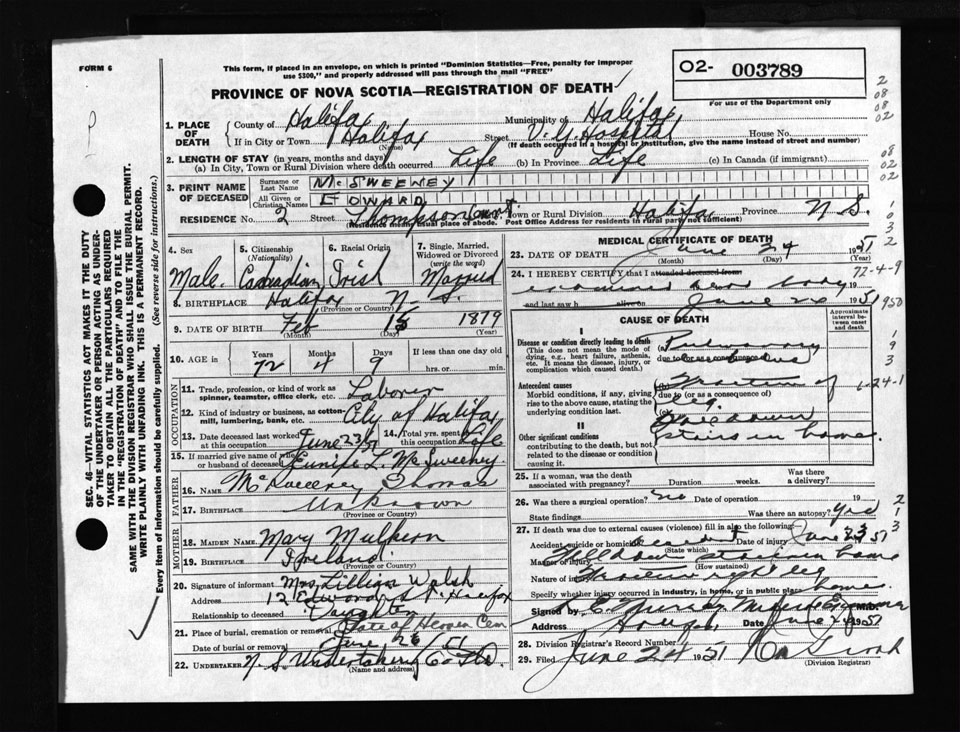 FORM 6
This form, if placed in an envelope, on which is printed "Dominion Statistics—Free, penalty for improper
use $300," and properly addressed will pass through the mail "FREE"
O2- 003789
For use of the Department only
PROVINCE OF NOVA SCOTIA—REGISTRATION OF DEATH
1. PLACE OF DEATH
County of Halifax
Municipality of Halifax
If in City or Town Halifax (Name) Street V. G. Hospital House No.
(If death occurred in a hospital or institution, give the name instead of street and number)
2. LENGTH OF STAY (in years, months and days)
(a) In City, Town or Rural Division where death occurred Life (b) in Province Life (c) In Canada (if immigrant)
3. PRINT NAME OF DECEASED
Surname or Last Name McSWEENEY
All Given or Christian Names EDWARD
RESIDENCE No. 2 Street Thompson Court Town or Rural Division Halifax Province N S.
(Residence means usual place of abode. Post Office Address for residents in rural parts not sufficient)
4. Sex
Male
5. Citizenship (Nationality)
Canadian
6. Racial Origin
Irish
7. Single, Married, Widowed or Divorced (write the word)
Married
8. BIRTHPLACE Halifax N-S.
(Province or Country)
9. DATE OF BIRTH Feb 15 1879
(Month) (Day) (Year)
10. AGE in
Years 72 Months 4 Days 9
If less than one day old
hrs. or min.
OCCUPATION
11. Trade, profession, or kind of work as spinner, teamster, office clerk, etc. Laborer
12. Kind of industry or business, as cotton mill, lumbering, bank, etc. City of Halifax
13. Date deceased last worked at this occupation June 23/51
14. Total yrs. spent in this occupation Life
15. If married give name of wife or husband of deceased Eunife L. McSweeney
FATHER
16. NAME McSweeney Thomas
17. BIRTHPLACE Unknown
(Province or Country)
MOTHER
18. MAIDEN NAME Mary Mulkern
19. BIRTHPLACE Ireland
(Province or Country)
20. Signature of informant Mrs. Lillian Walsh
Address 12 Edward St. Halifax
Relationship to deceased Daughter
21. Place of burial, cremation or removal Gate of Heaven Cem
Date of burial or removal June 26/51
22. UNDERTAKER N. S. Undertaking Co Ltd.
(Name and address)
MEDICAL CERTIFICATE OF DEATH
23. DATE OF DEATH June 24 1951
(Month) (Day)
24. I HEREBY CERTIFY that I attended deceased from
examined dead body
and last saw h alive on June 24 1951
72-4-9
950
CAUSE OF DEATH
Approximate interval between onset and death
I
Disease or condition directly leading to death
(This does not mean the mode of dying, e.g., heart failure, asthenia, etc. It means the disease, injury, or complication which caused death.)
Pulmonary
due to (or as a consequence of)
Antecedent causes
Morbid conditions, if any, giving rise to the above cause, stating the underlying condition last.
(b) Fracture of
due to (or as a consequence of)
Leg.
(c)
II
Other significant conditions
contributing to the death, but not related to the disease or condition causing it.
Fell down
stairs in home.
25. If a woman, was the death associated with pregnancy? Duration weeks. Was there a delivery?
26. Was there a surgical operation? no Date of operation 19
State findings Was there an autopsy? Yes
27. If death was due to external causes (violence) fill in also the following:
Accident suicide or homicide Accident Date of injury June 23 51
(State which)
Manner of injury Fell down stairs in home
(How sustained)
Nature of injury Fracture right leg
Specify whether injury occurred in industry, in home, or in public place home.
Signed by M.D.
Address Halifax Date June 24 1951
28. Division Registrar's Record Number
29. Filed June 24 1951
(Division Registrar)
SEC. 46—VITAL STATISTICS ACT MAKES IT THE DUTY
OF THE UNDERTAKER OR PERSON ACTING AS UNDER-
TAKER TO OBTAIN ALL THE PARTICULARS REQUIRED
IN THE "REGISTRATION OF DEATH" AND TO FILE THE
SAME WITH THE DIVISION REGISTRAR WHO SHALL ISSUE THE BURIAL PERMIT.
WRITE PLAINLY WITH UNFADING INK. THIS IS A PERMANENT RECORD.
Every item of information should be carefully supplied. (See reverse side for instructions.)